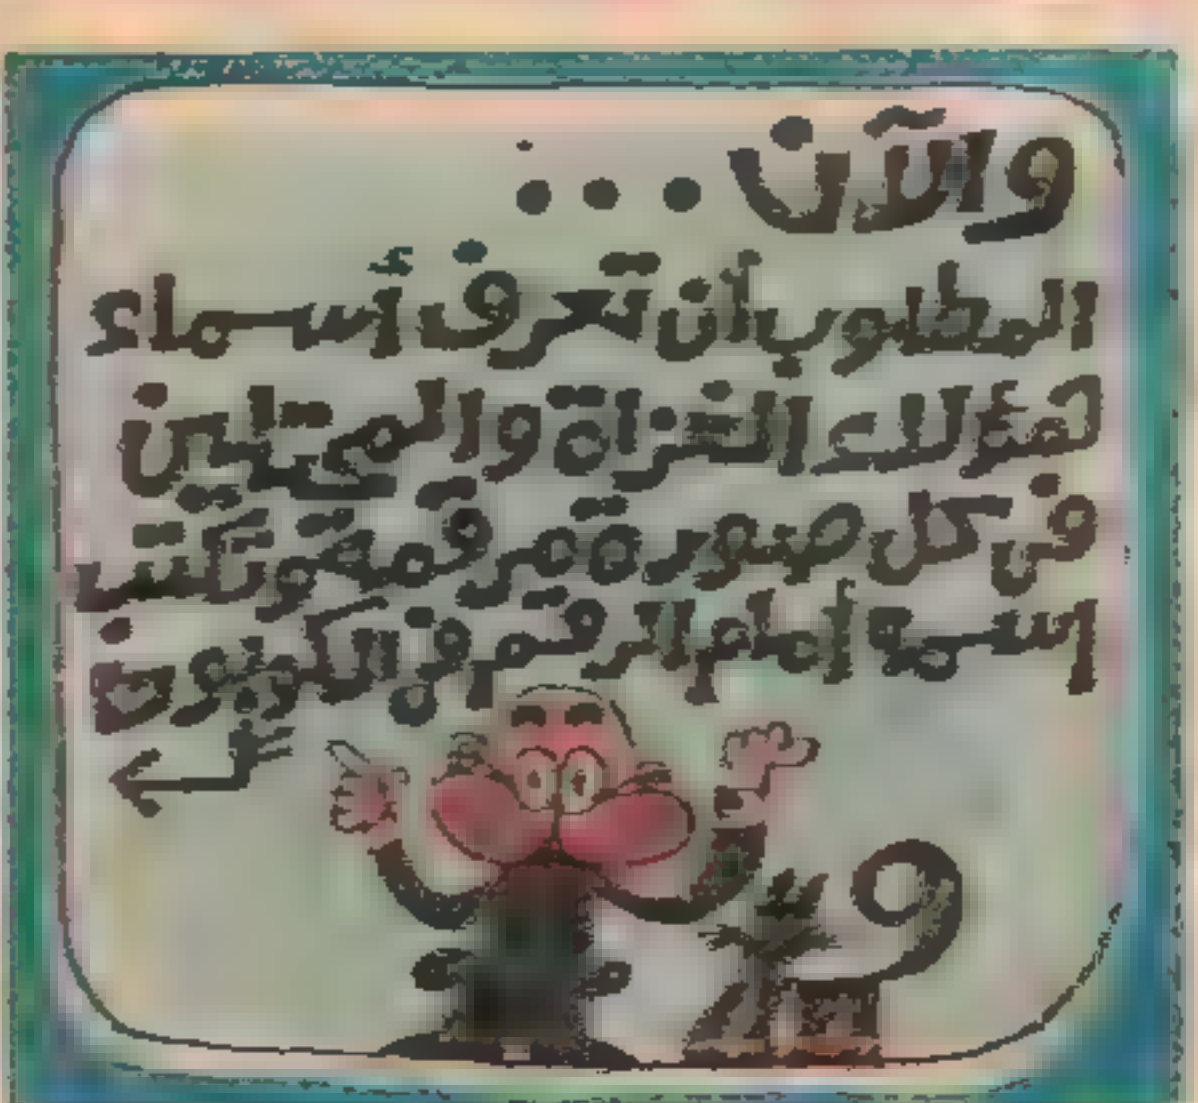 والآن...
المطلوب أن تعرف أسماء
هؤلاء الغزاة والمحتلين
في كل صورة مرقمة وتكتب
اسمه أمام الرقم في الكوبون